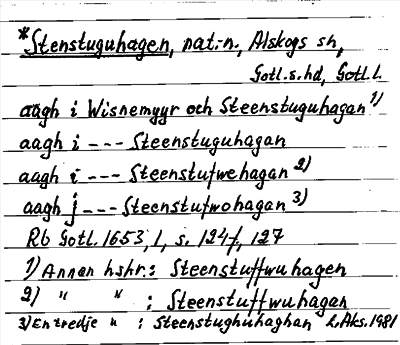 *Stenstuguhagen, nat.-n., Alskogs sn,
Gotl.s.hd, Gotl.l.
aagh i Wisnemyyr och Steenstuguhagan 1)
aagh i --- Steenstuguhagan
aagh i --- Steenstufwehagan 2)
aagh j --- Steenstufwohagan 3)
Rb Gotl. 1653, 1, s. 124f, 127
1) Annan hskr.: Steenstuffwuhagen
2) " " : Steenstuffwuhagan
3) En tredje " : Steenstughuhaghan L.Aks. 1981